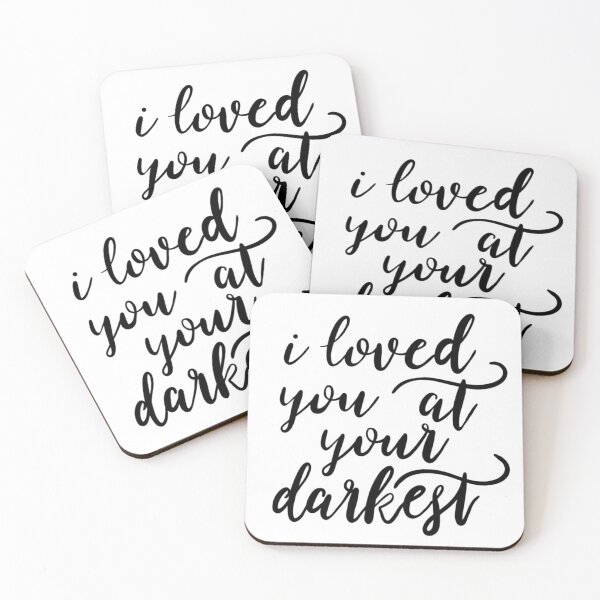 i loved
you at
i loved
you at
your
i loved
you at
your
i loved
you at
your
darkest